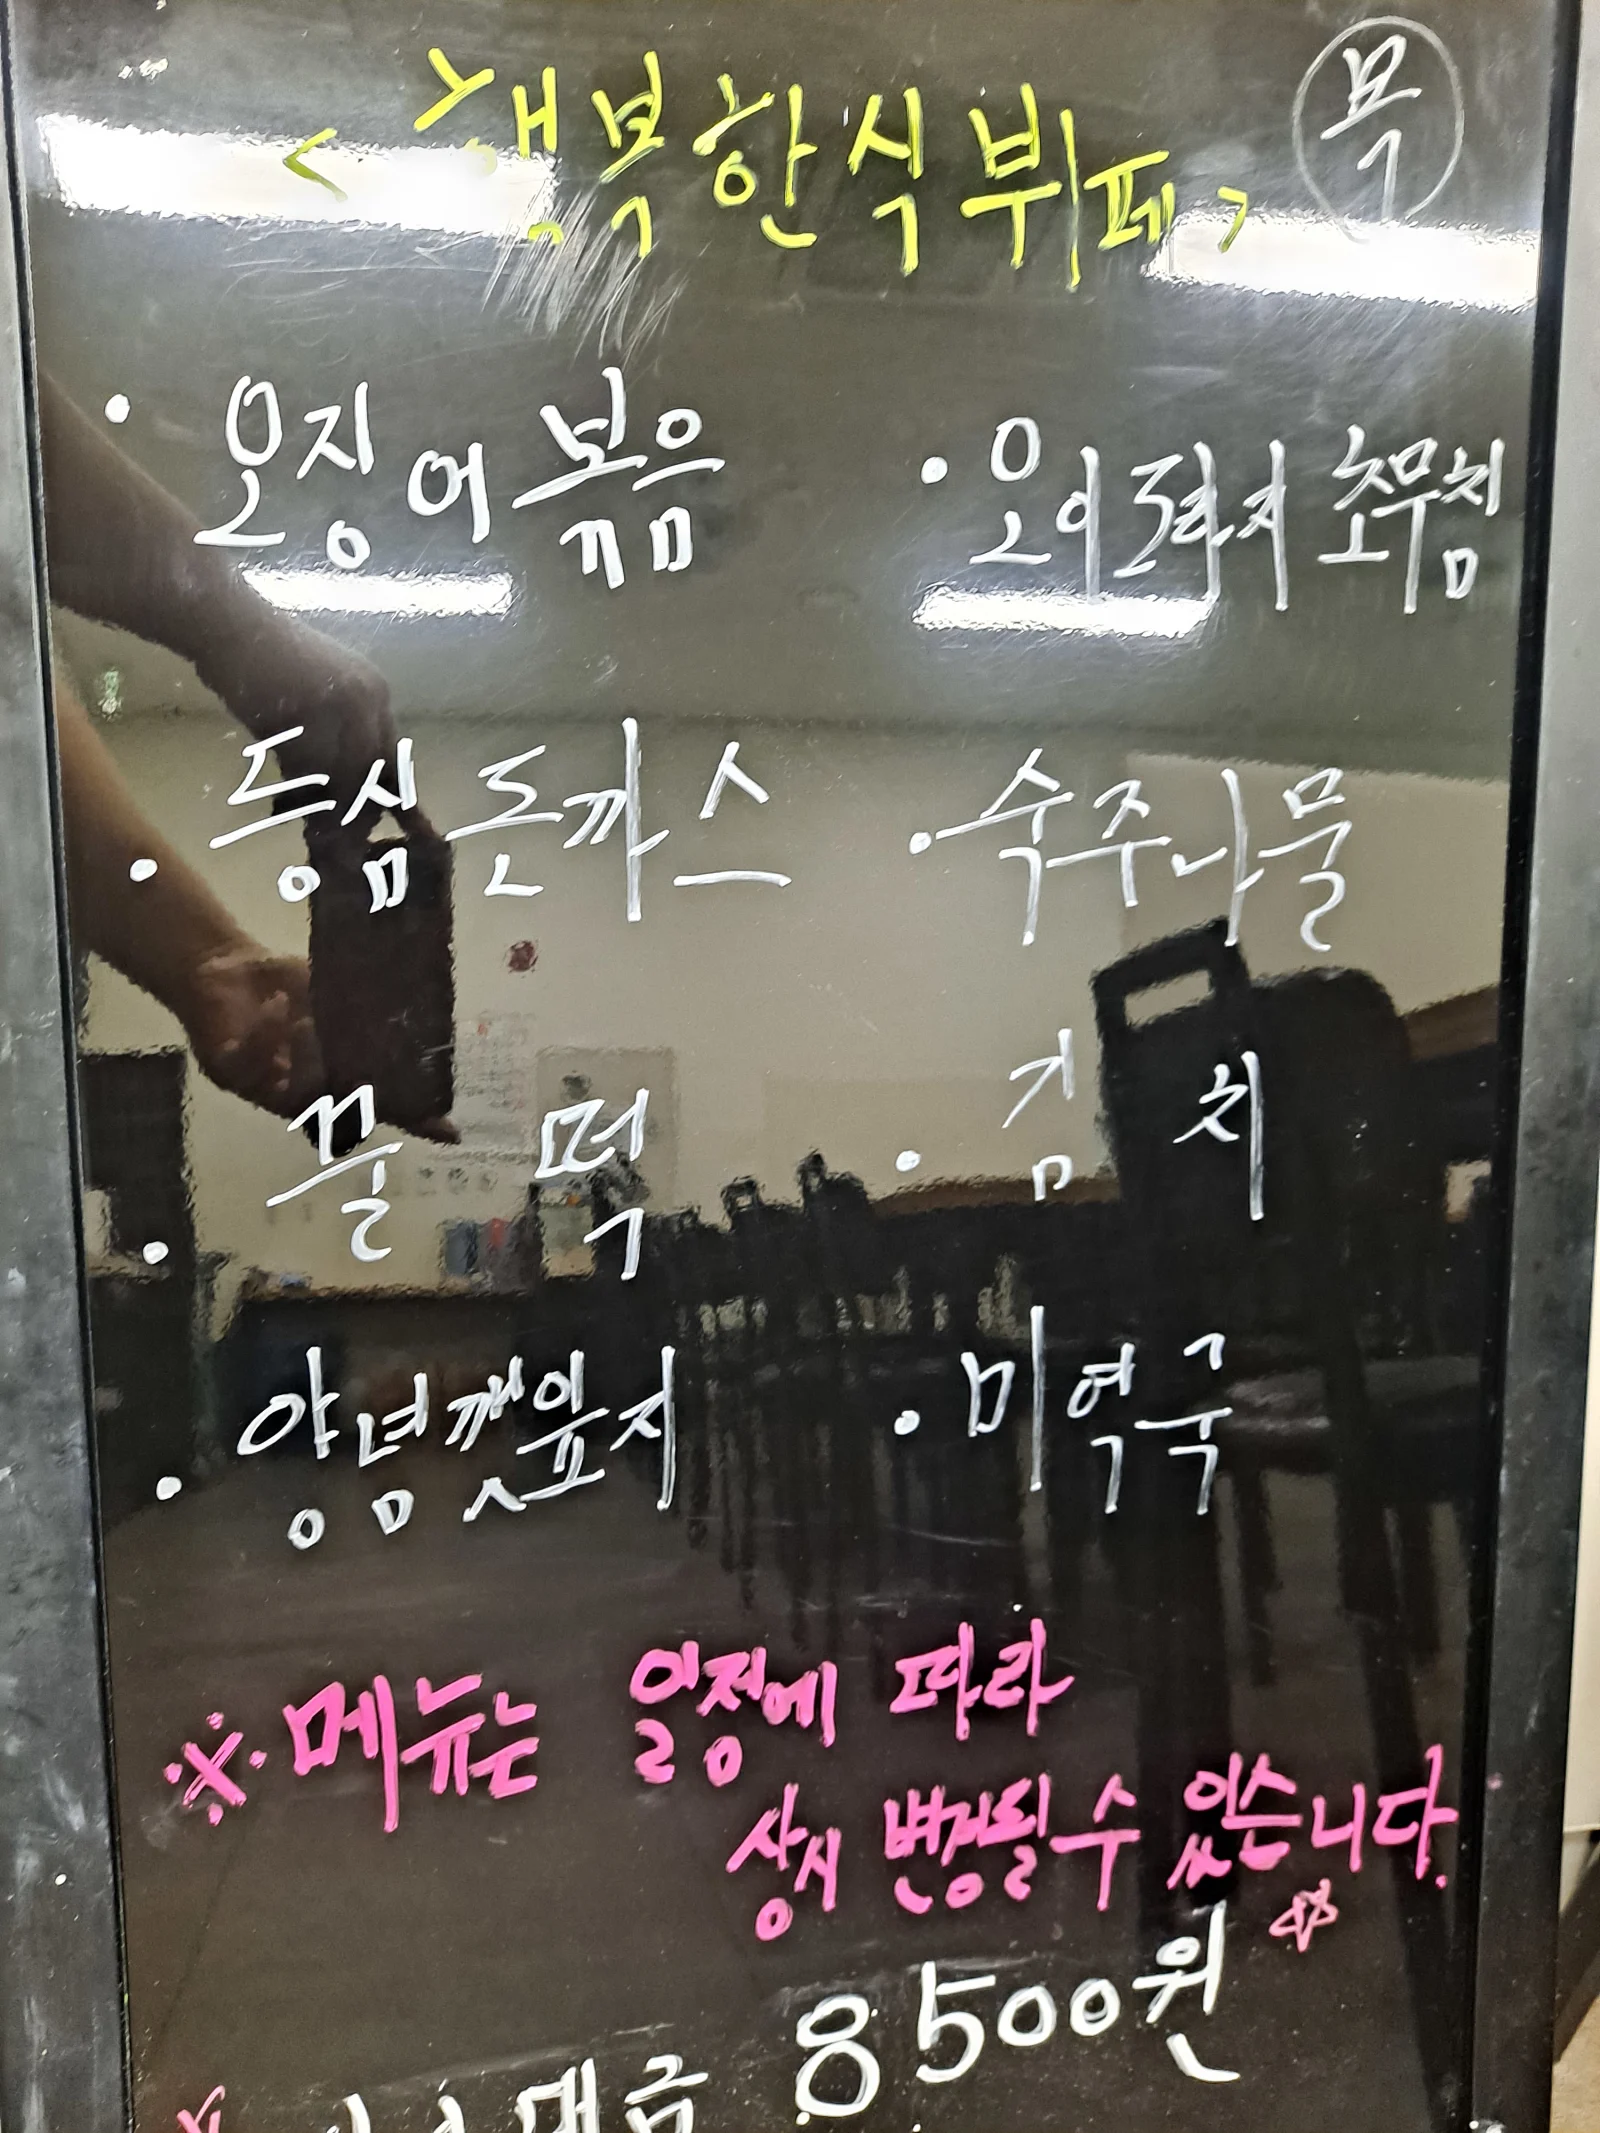 <행복한식뷔페> 목
· 오징어볶음 · 오이락지 초무침
· 등심돈까스 · 숙주나물
· 꿀떡 · 김치
· 양념깻잎지 · 미역국
※ 메뉴는 일정에 따라
상시 변경될 수 있습니다.
☆
대금 8500원